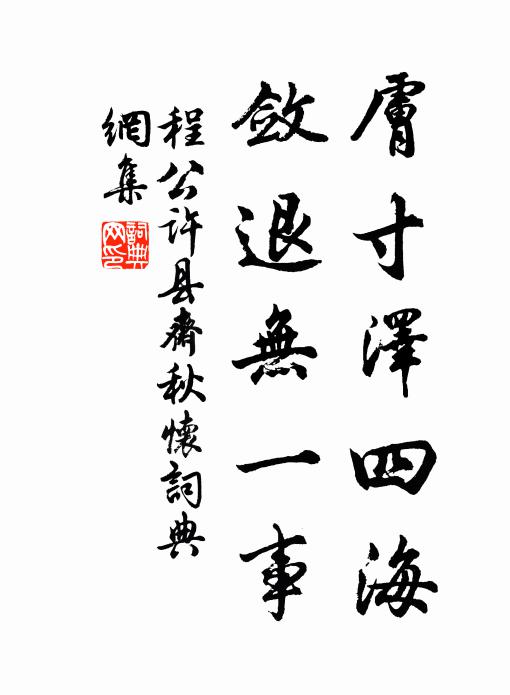 膚寸澤四海
斂退無一事
程公许县齋秋懷詞典
網集
詞典
网印